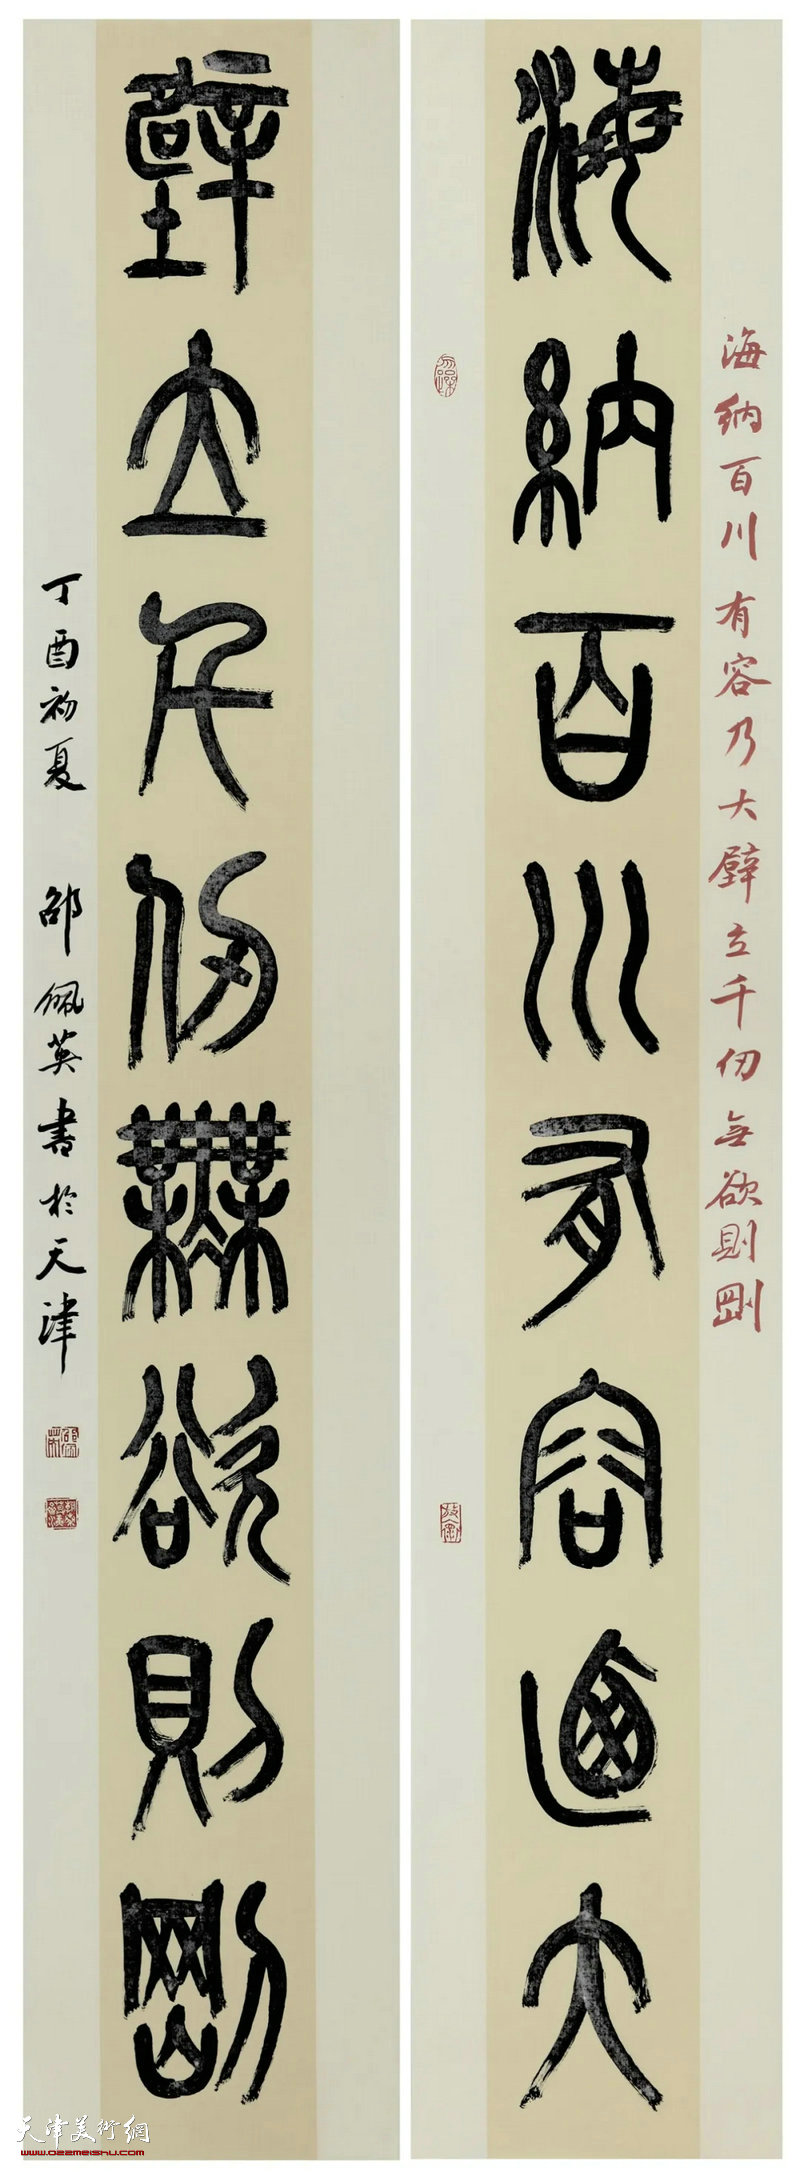 海納百川有容乃大壁立千仞無欲則剛
海納百川有容乃大
壁立千仞無欲則剛
丁酉初夏 邵佩英書於天津
天津美術網
www.022meishu.com